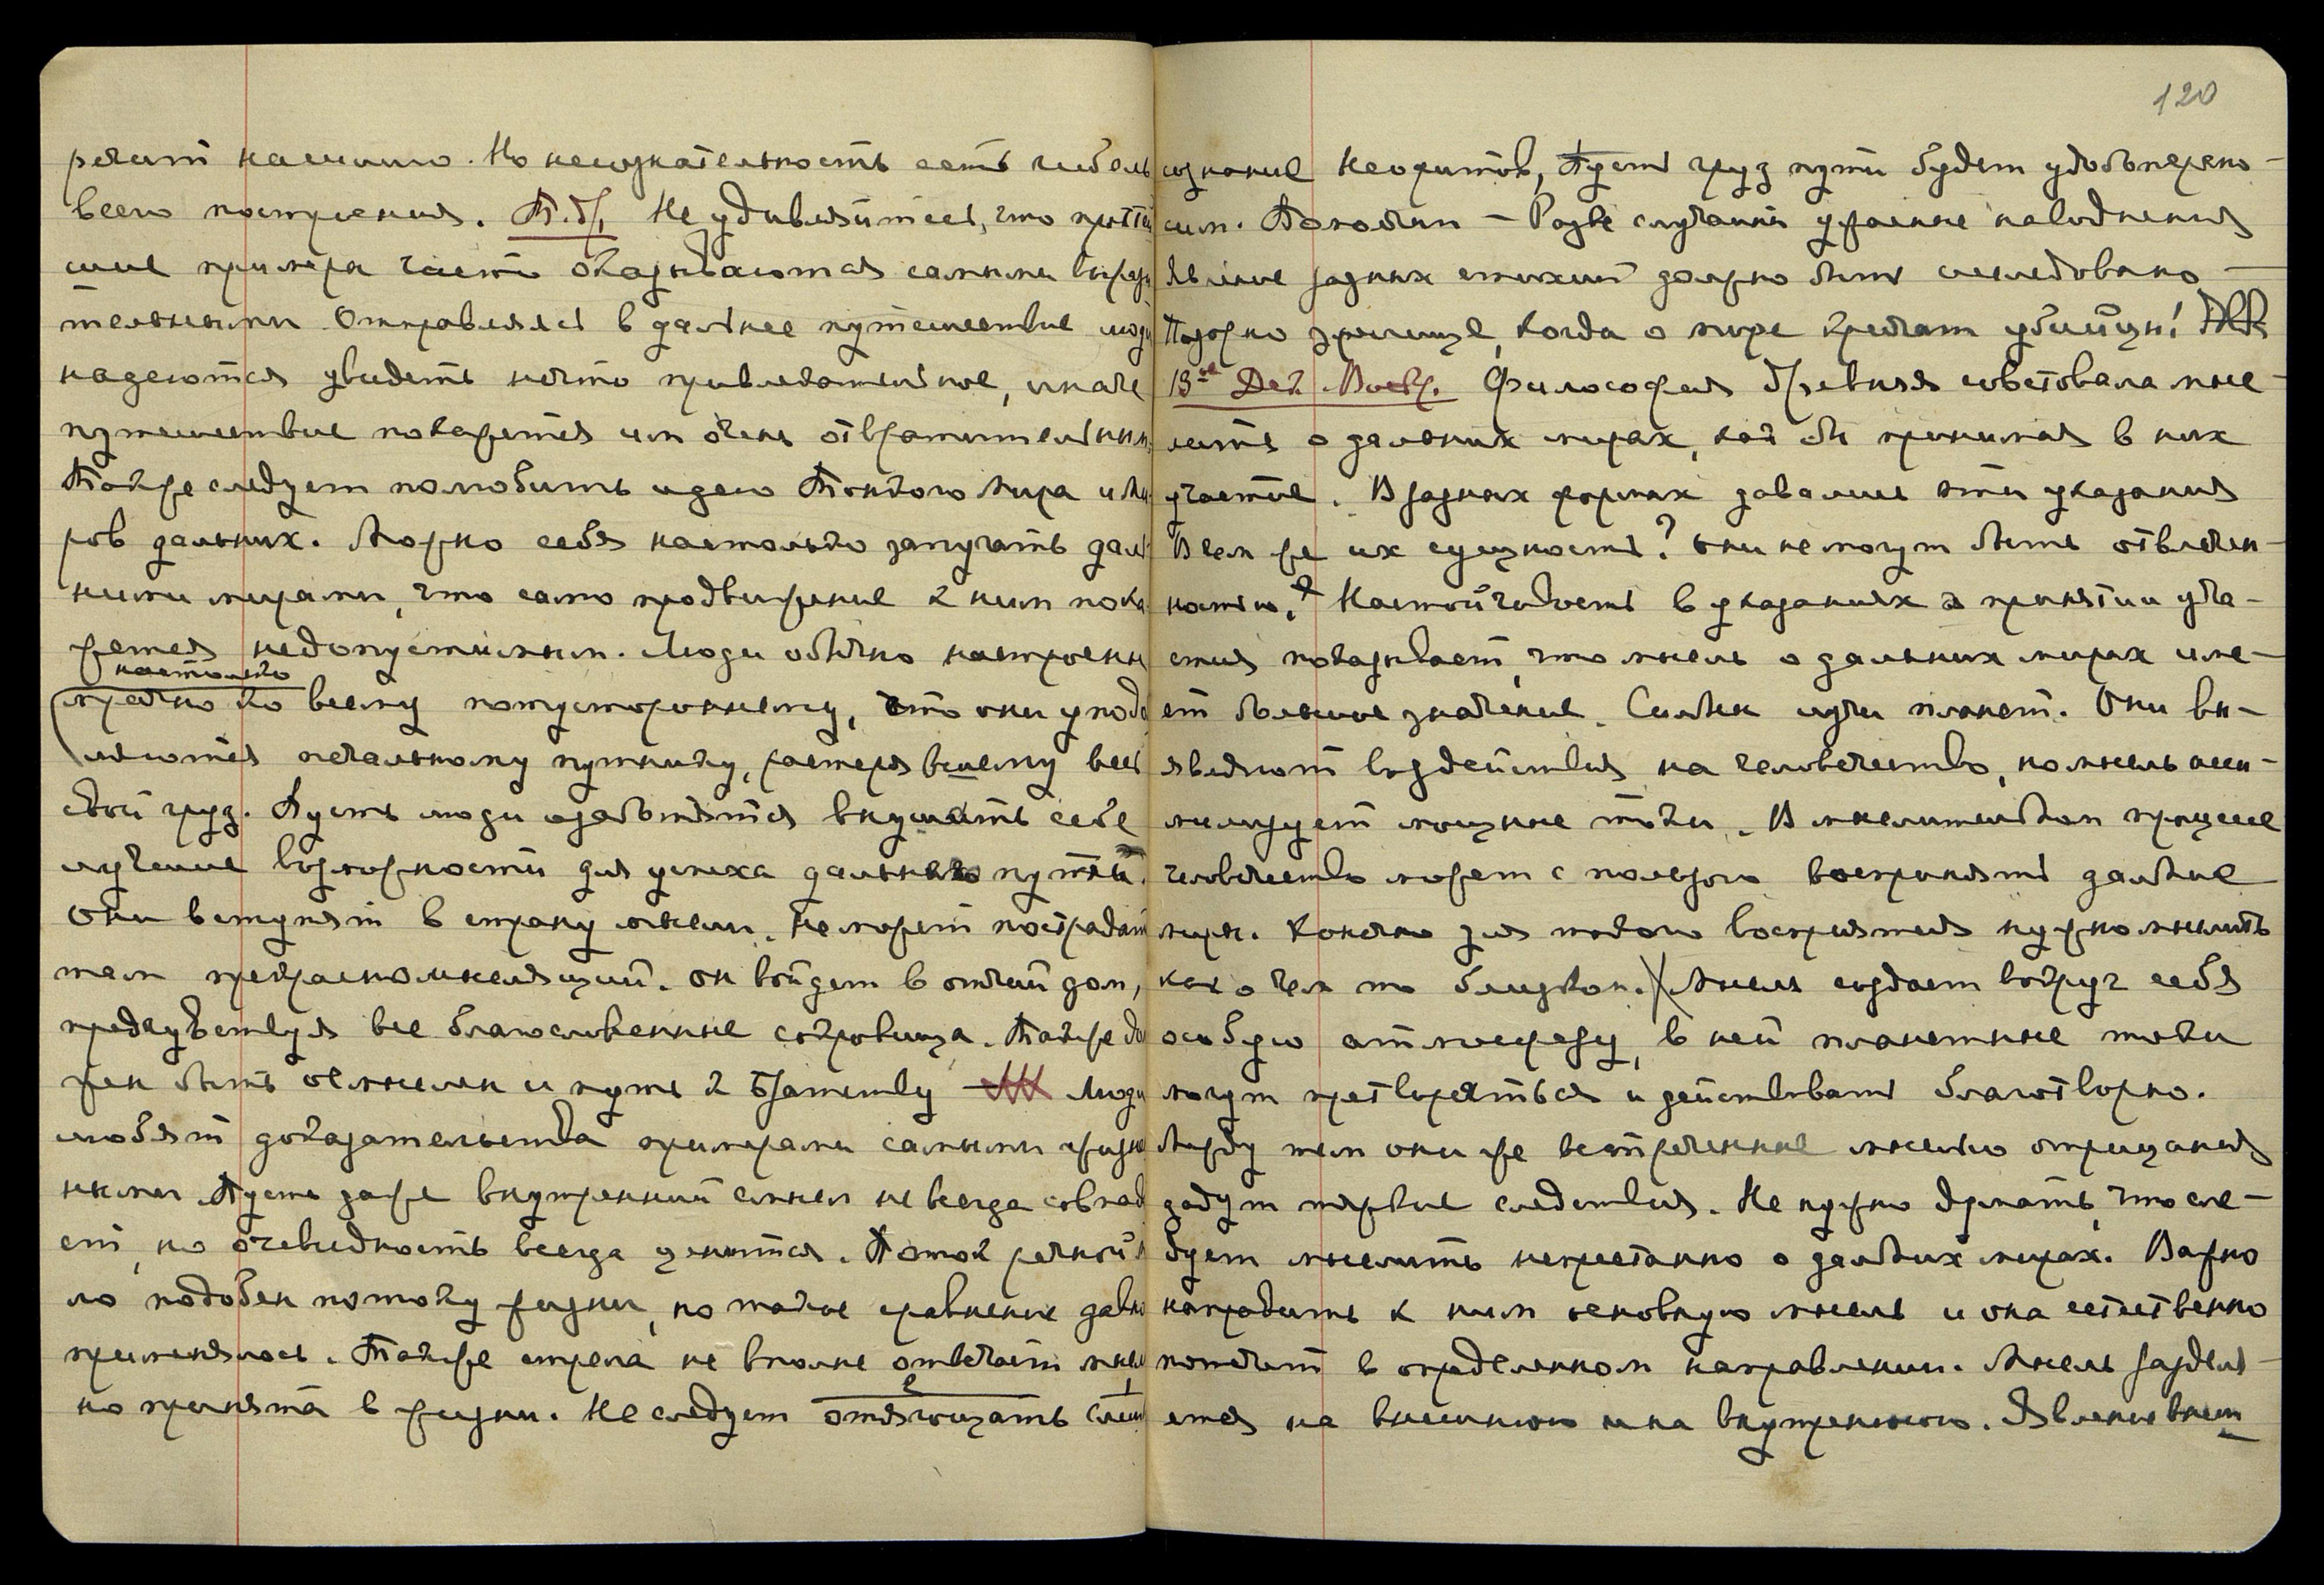 речит насилию. Но несознательность есть гибель
всего построения. Т.Д. Не удивляйтесь, что простей
шие примеры часто оказываются самыми вырази
тельными Отправляясь в дальнее путешествие люди
надеются увидеть нечто привлекательное, иначе
путешествие покажется им очень отвратительным
Также следует полюбить идею Тонкого Мира и Ми
ров дальних. Можно себя настолько запугать даль
ними мирами, что само продвижение к ним пока
жется недопустимым. Люди обычно настроены
настолько
мрачно ко всему потустороннему, что они упода
ляются печальному путнику, растерявшему весь
свой груз. Пусть люди озаботятся внушить себе
лучшие возможности для успеха дальних путей.
Они вступят в страну мысли. Не может пострадать
там прекрасномыслящий. Он войдет в отчий дом,
предчувствуя все благословенные сокровища. Также до
жен быть осмыслен и путь к Братству Люди
любят доказательства примерами самыми жизне
нными Пусть даже внутренний смысл не всегда совпад
ет, но очевидность всегда ценится. Поток речной м
ло подобен потоку жизни, но такое сравнение давно
применялось. Также стрела не вполне отвечает мысли
но принята в жизни. Не следует отягощать слиш
120
сознание неофитов, Пусть груз пути будет удобоперено-
сим. Полночи - Разве случайны ураганы наводнения
Явление разных стихий должно быть исследовано -
Позорно зрелище, когда о мире кричат убийцы!
13ое Дек. Воскр. Философия Древняя советовала мыс-
лить о дальних мирах, как бы принимая в них
участие. В разных формах давались эти указания
В чем же их сущность? Они не могут быть отвлечен-
ностью. Настойчивость в указаниях о принятии уча-
стия показывает, что мысль о дальних мирах име-
ет большое значение. Сильны лучи планет. Они вы-
являют воздействия на человечество, но мысль асси-
милирует мощные токи. В мыслительном процессе
человечество может с пользою воспринять дальние
миры. Конечно для такого восприятия нужно мыслить
как о чем то близком. Мысль создает вокруг себя
особую атмосферу, в ней планетные токи
могут претворяться и действовать благотворно.
Между тем они же встреченные мыслью отрицания
дадут тяжкие следствия. Не нужно думать, что сле-
дует мыслить непрестанно о дальних мирах. Важно
направить к ним основную мысль и она естественно
потечет в определенном направлении. Мысль разделя-
ется на внешнюю и на внутреннюю. Явление внеш